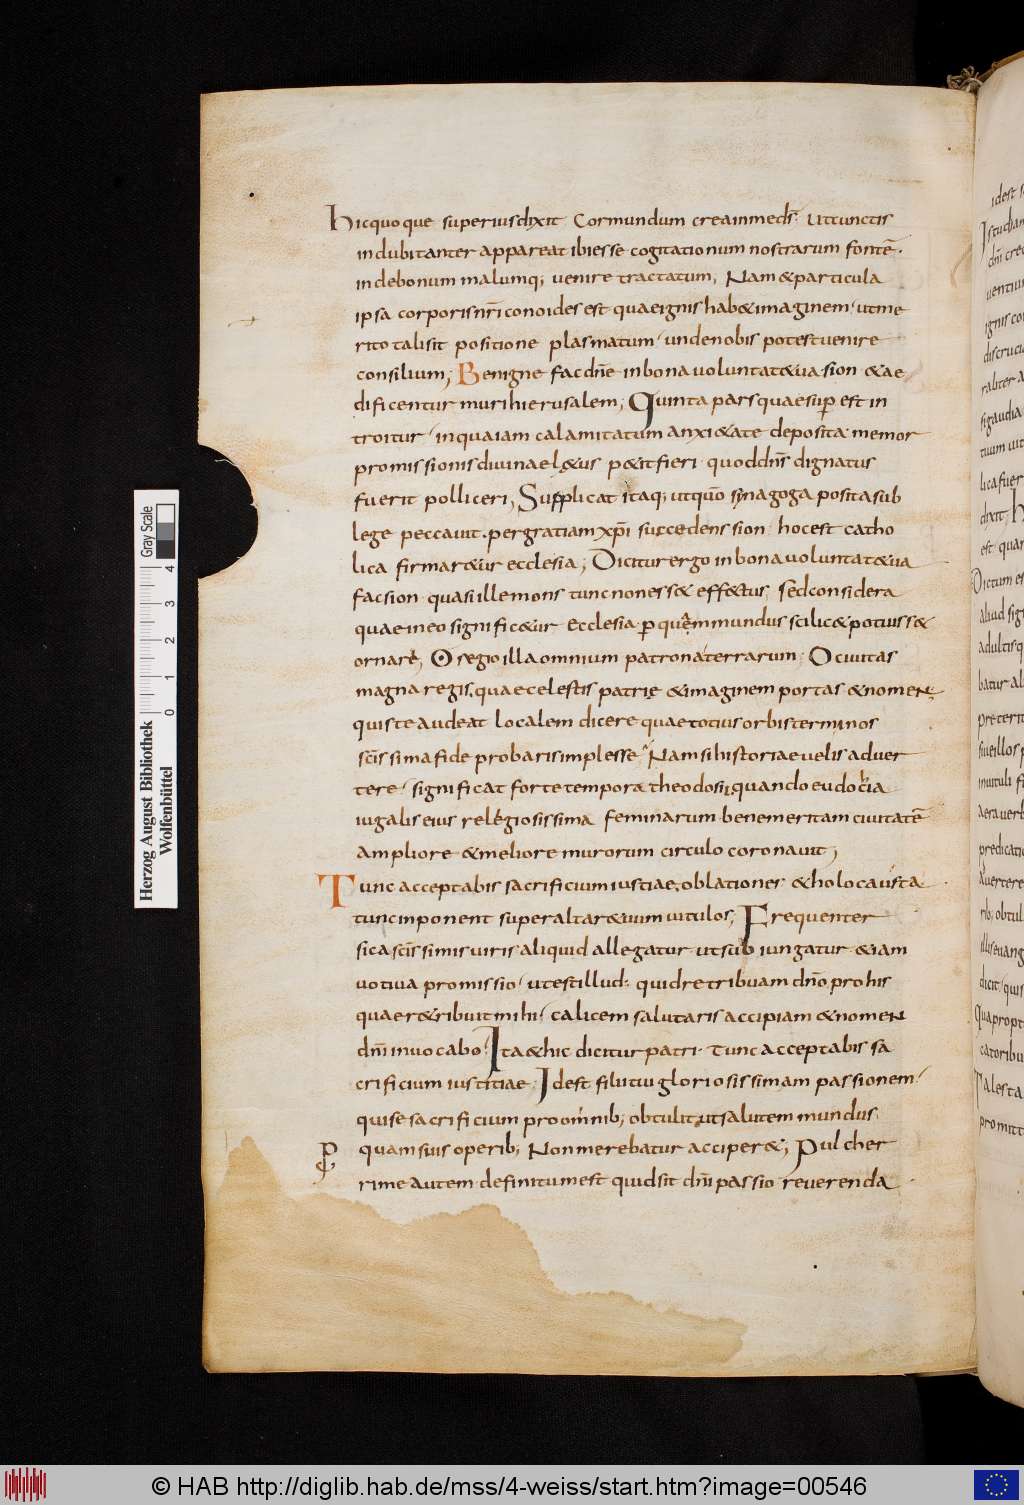 hic quoque superius dixit · Cor mundum crea in me ds̄ · Ut cunctis
indubitanter appareat ibi esse cogitationum nostrarum fontē ·
inde bonum malumq; venire tractatum; Nam & particula
ipsa corporis nr̄i conoides est quae ignis hab& imaginem · ut me
rito talis sit positione plasmatum · unde nobis potest venire
consilium; Benigne fac dn̄e in bona voluntate tua sion · & ae
dificentur muri hierusalem; Quinta pars quae suꝑ est in
troitur · in qua iam calamitatum anxi&ate deposita memor
promissionis divinae l&us p&it fieri · quod dn̄s dignatus
fuerit polliceri; Supplicat itaq; ut quō synagoga posita sub
lege peccavit · per gratiam xp̄i succedens sion · hoc est catho
lica firmar&ur ecclesia; Dicitur ergo in bona voluntate tua
fac sion · quasi ille mons tunc non ess& eff&tus · sed considera
quae in eo signific&ur · Ecclesia · ꝑ quē mundus scilic& potuiss&
ornare; O segio illa omnium patrona terrarum · O civitas
magna regis, quae celestis patrię & imaginem portas & nomen ·
quis te audeat localem dicere quae totius orbis terminos
sc̄issima fide probaris implesse · Nam si historiae velis adver
tere · significat forte tempora theodosii, quando eudocia
iugalis eius religiosissima feminarum · benemeritam civitatē
ampliore & meliore murorum circulo coronavit;
Tunc acceptabis sacrificium iustiae, oblationes · & holocausta ·
tunc inponent super altare tuum vitulos; Frequenter
sic a sc̄issimis viris aliquid allegatur · ut subiungatur · &iam
votiva promissio · ut est illud · quid retribuam dn̄o pro his
quae r&ribuit mihi · calicem salutaris accipiam & nomen
dn̄i invocabo · Ita & hic dicitur patri · Tunc acceptabis sa
crificium iustitiae · Idest filii tui gloriosissimam passionem ·
qui se sacrificium pro omnib; obtulit, ut salutem mundus ·
quam suis operib; Non merebatur acciper&; Pulcher
rime autem definitum est quid sit dn̄i passio reverenda ·
Herzog August Bibliothek
Wolfenbüttel
0 1 2 3 4
Gray Scale
© HAB http://diglib.hab.de/mss/4-weiss/start.htm?image=00546